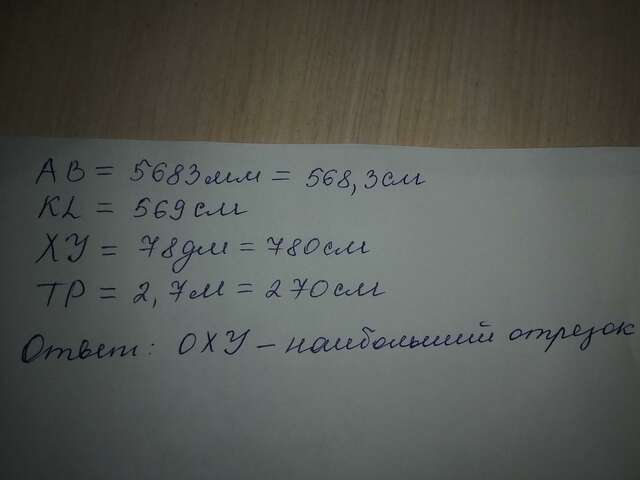 AB = 5683мм = 568,3см
KL = 569см
ХУ = 78дм = 780см
ТР = 2,7м = 270см
Ответ: ОХУ – наибольший отрезок